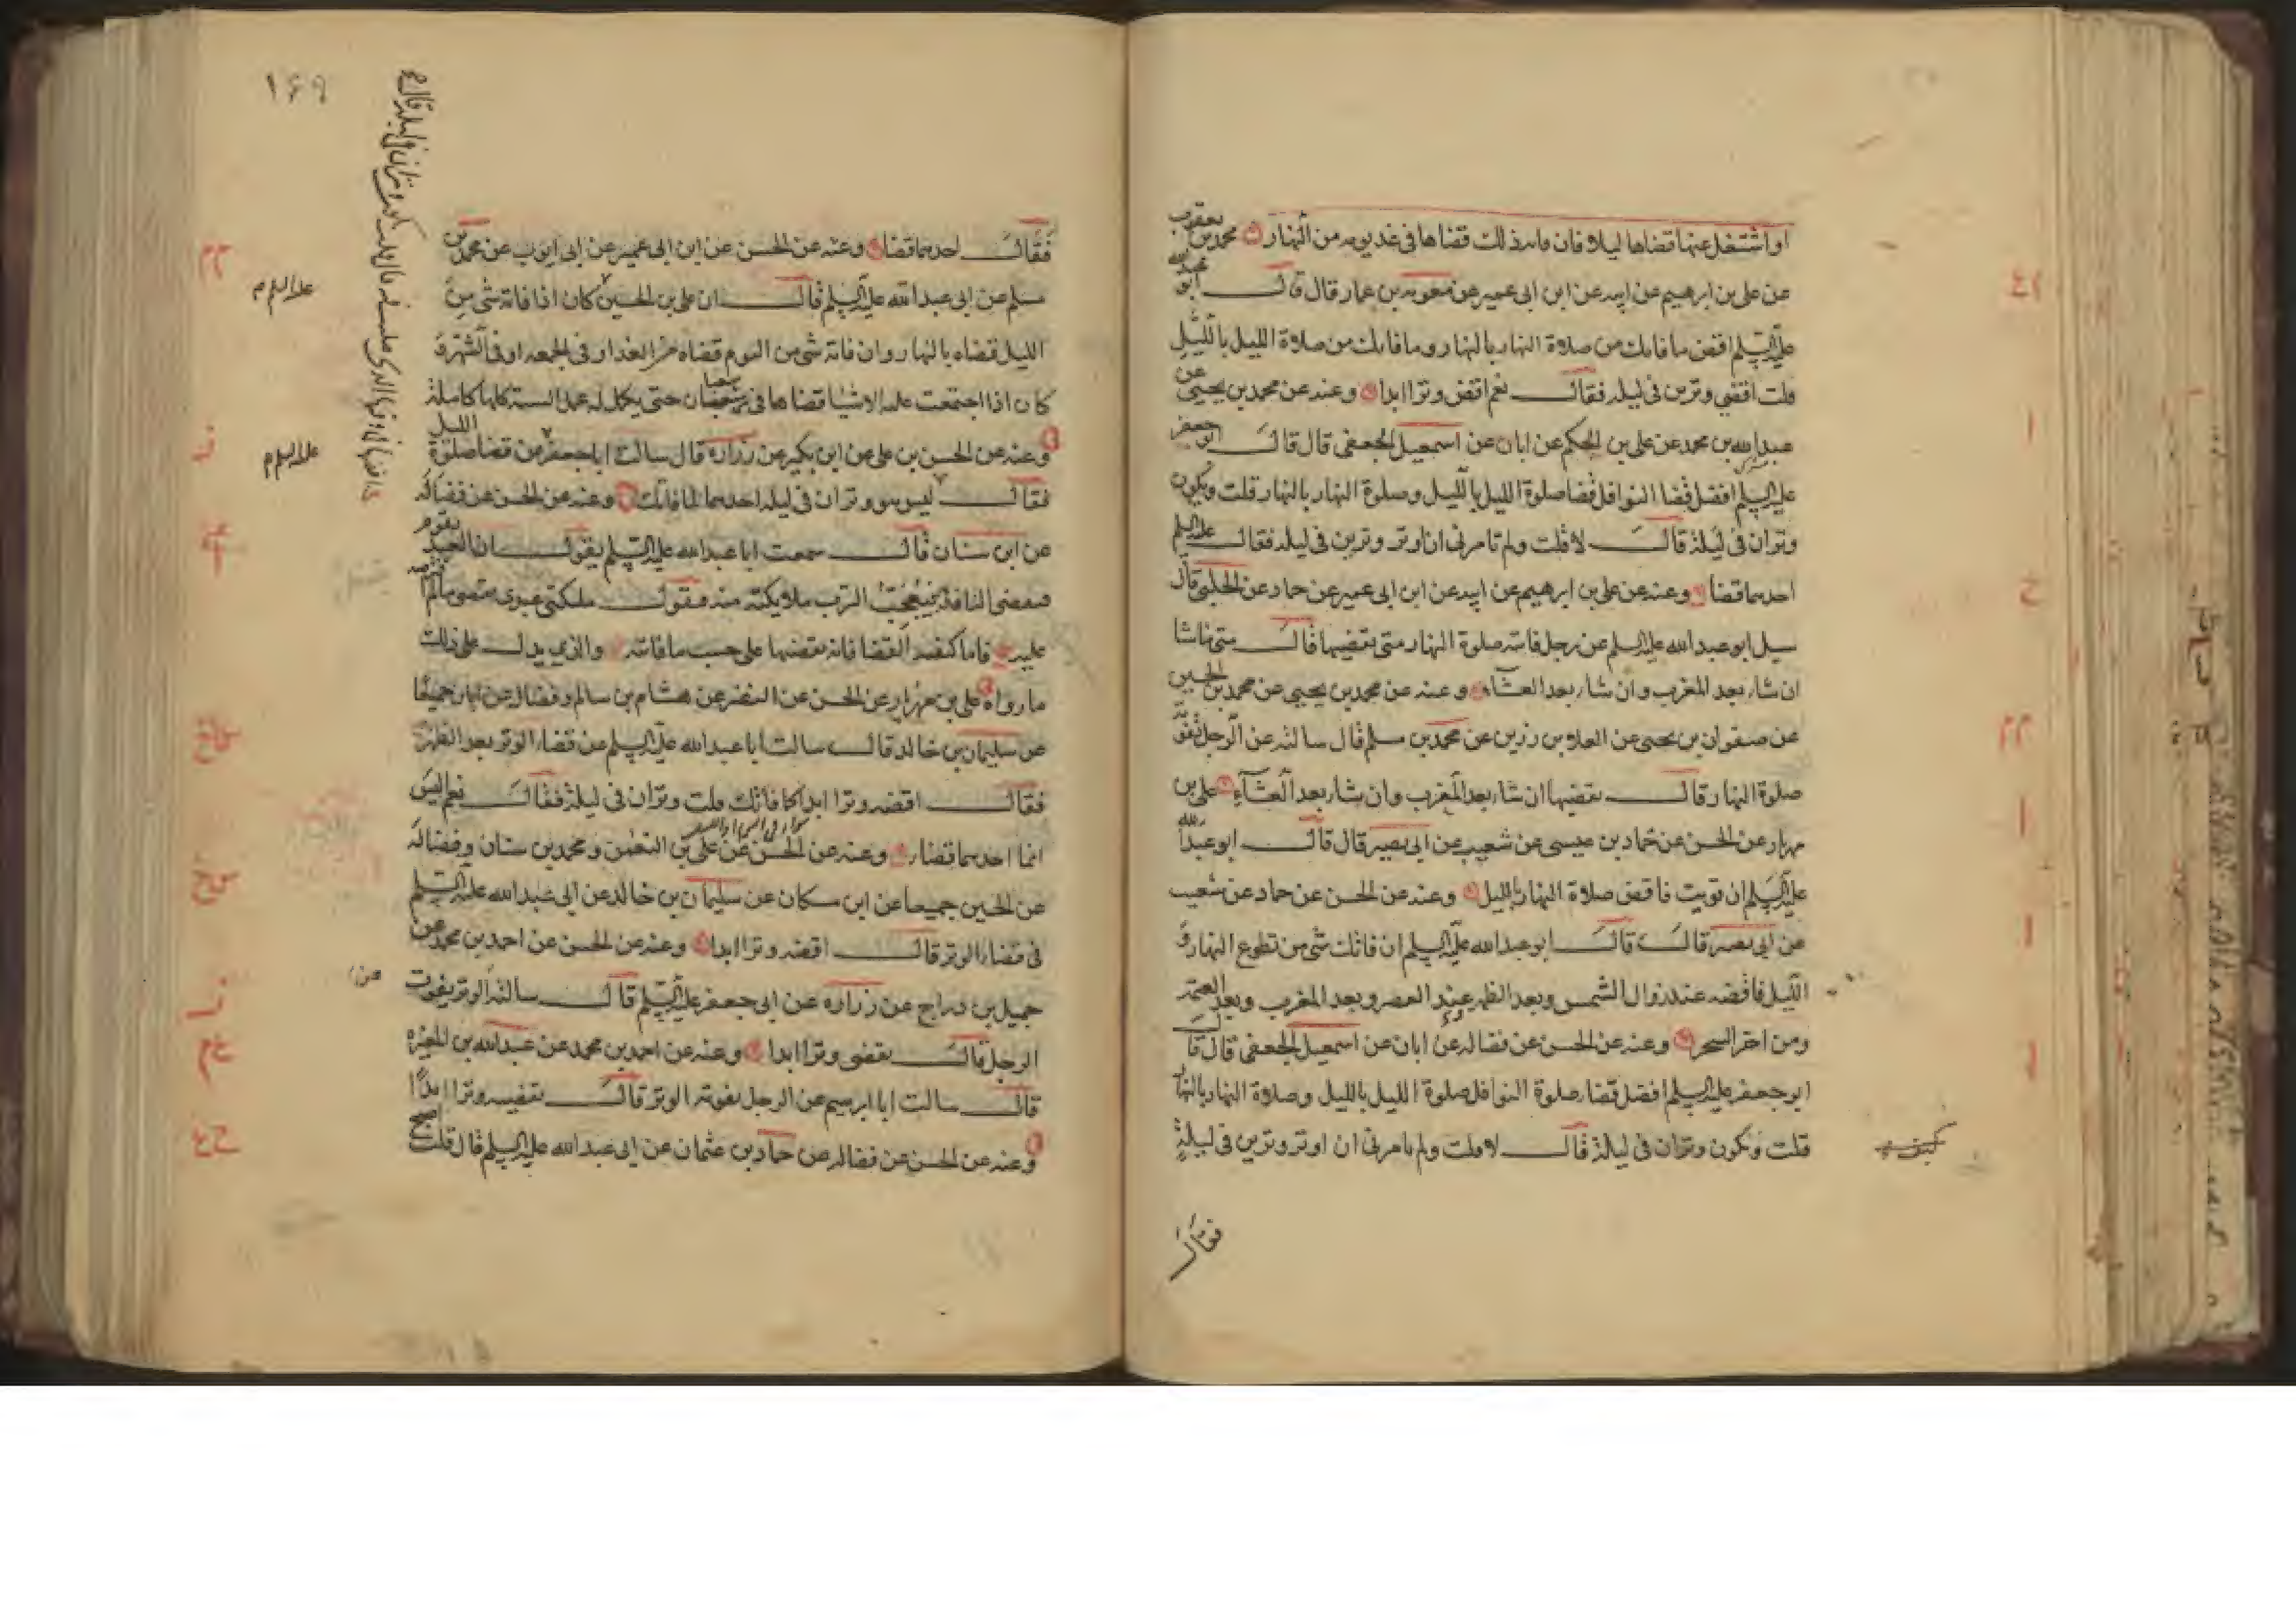 او اشتغل عنها قضاها ليلا فان فاته ذلك قضاها في غد يومه من النهار محمد بن يعقوب
عن علي بن ابرهيم عن ابيه عن ابن ابي عمير عن معوية بن عمار قال قال ابو عبد الله
عليه السلم اقض ما فاتك من صلاة النهار بالنهار وما فاتك من صلاة الليل بالليل
قلت اقضي وترين في ليله فقال نعم اقض وترا ابدا وعنه عن محمد بن يحيى عن
عبد الله بن محمد عن علي بن الحكم عن ابان عن اسمعيل الجعفي قال قال ابو جعفر
عليه السلم افضل قضا النوافل قضا صلوة الليل بالليل وصلوة النهار بالنهار قلت ويكون
وتران في ليلة قال لا قلت ولم تامرني ان اوتر وترين في ليله فقال عليه السلم
احدهما قضا وعنه عن علي بن ابرهيم عن ابيه عن ابن ابي عمير عن حماد عن الحلبي قال
سيل ابو عبد الله عليه السلم عن رجل فاتته صلوة النهار متى يقضيها قال متى ما شا
ان شاء بعد المغرب وان شاء بعد العشاء وعنه عن محمد بن يحيى عن محمد بن الحسين
عن صفوان بن يحيى عن العلاء بن رزين عن محمد بن مسلم قال سالته عن الرجل تفوته
صلوة النهار قال يقضيها ان شاء بعد المغرب وان شاء بعد العشاء علي بن
مهزيار عن الحسن عن حماد بن عيسى عن شعيب عن ابي بصير قال قال ابو عبد الله
عليه السلم ان قويت فاقض صلاة النهار بالليل وعنه عن الحسن عن حماد عن شعيب
عن ابي بصير قال قال ابو عبد الله عليه السلم ان فاتك شي من تطوع النهار و
الليل فاقضه عند زوال الشمس وبعد الظهر عند العصر وبعد المغرب وبعد العتمه
ومن اخر السحر وعنه عن الحسن عن فضاله عن ابان عن اسمعيل الجعفي قال قال
ابو جعفر عليه السلم افضل قضاء صلوة النوافل صلوة الليل بالليل وصلاة النهار بالنهار
قلت ويكون وتران في ليلة قال لا قلت ولم تامرني ان اوتر وترين في ليلة
فقال
١٤٩
فقال احدهما قضا وعنه عن الحسن عن ابن ابي عمير عن ابي ايوب عن محمد بن
مسلم عن ابي عبد الله عليه السلم قال ان علي بن الحسين كان اذا فاته شي من
الليل قضاه بالنهار وان فاته شي من اليوم قضاه من الغد او في الجمعه او في الشهر و
كان اذا اجتمعت عليه الاشيا قضاها في شعبان حتى يكمل له عمل السنة كلها كاملة
وعنه عن الحسن بن علي عن ابن بكير عن زراره قال سالت ابا جعفر عن قضا صلوة الليل
فقال ليس وتران في ليله احدهما لما فاتك وعنه عن الحسن عن فضاله
عن ابن سنان قال سمعت ابا عبد الله عليه السلم يقول ان العبد يقوم
فيقضي النافلة فيعجب الرب ملايكته منه فيقول ملايكتي عبدي يقضي ما لم افترضه
عليه فاما كيفيه القضا فانه يقضيها على حسب ما فاته والذي يدل على ذلك
ما رواه علي بن مهزيار عن الحسن عن النضر عن هشام بن سالم وفضاله عن ابان جميعا
عن سليمان بن خالد قال سالت ابا عبد الله عليه السلم عن قضاء الوتر بعد الظهر
فقال اقضه وترا ابدا كما فاتك قلت وتران في ليلة فقال نعم اليس
انما احدهما قضاء وعنه عن الحسن عن علي بن النعمن ومحمد بن سنان وفضاله
عن الحسين جميعا عن ابن مسكان عن سليمان بن خالد عن ابي عبد الله عليه السلم
في قضاء الوتر قال اقضه وترا ابدا وعنه عن الحسن عن احمد بن محمد عن
جميل بن دراج عن زراره عن ابي جعفر عليه السلم قال سالته الوتر يفوت
الرجل قال يقضي وترا ابدا وعنه عن احمد بن محمد عن عبد الله بن المغيره
قال سالت ابا ابرهيم عن الرجل يفوته الوتر قال يقضيه وترا ابدا
وعنه عن الحسن عن فضاله عن حماد بن عثمان عن ابي عبد الله عليه السلم قال قلت اصبح
عليه السلام
عليه السلام
عن